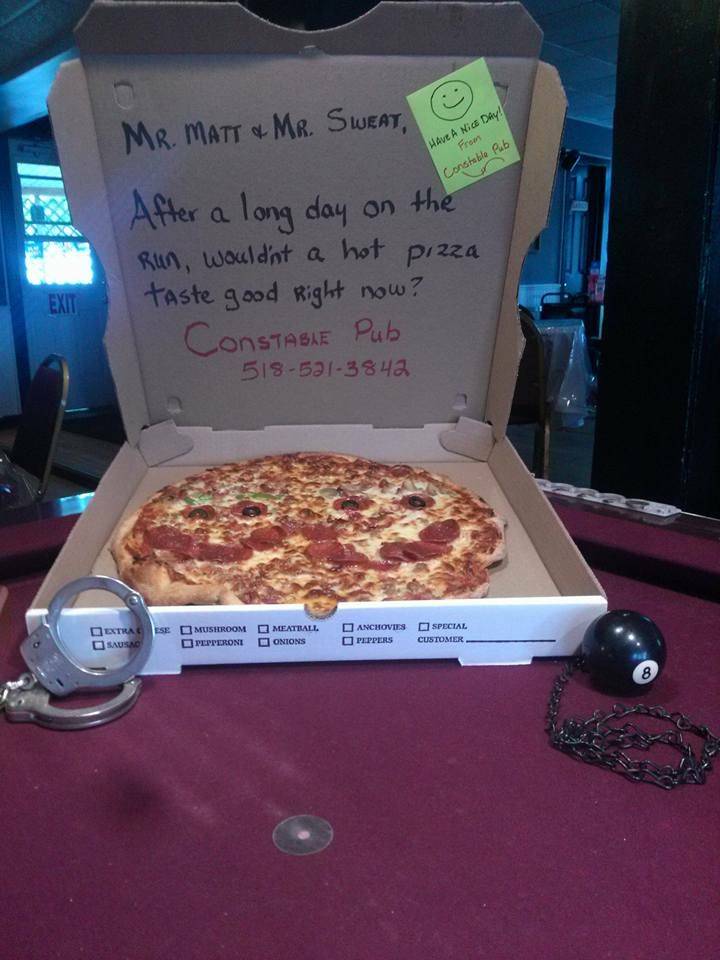 MR. MATT & MR. SWEAT,
HAVE A NICE DAY!
From
Constable Pub
After a long day on the
Run, would'nt a hot pizza
taste good Right now?
CONSTABLE Pub
518-521-3842
EXIT
EXTRA C ESE MUSHROOM MEATBALL ANCHOVIES SPECIAL
SAUSAG PEPPERONI ONIONS PEPPERS CUSTOMER
8